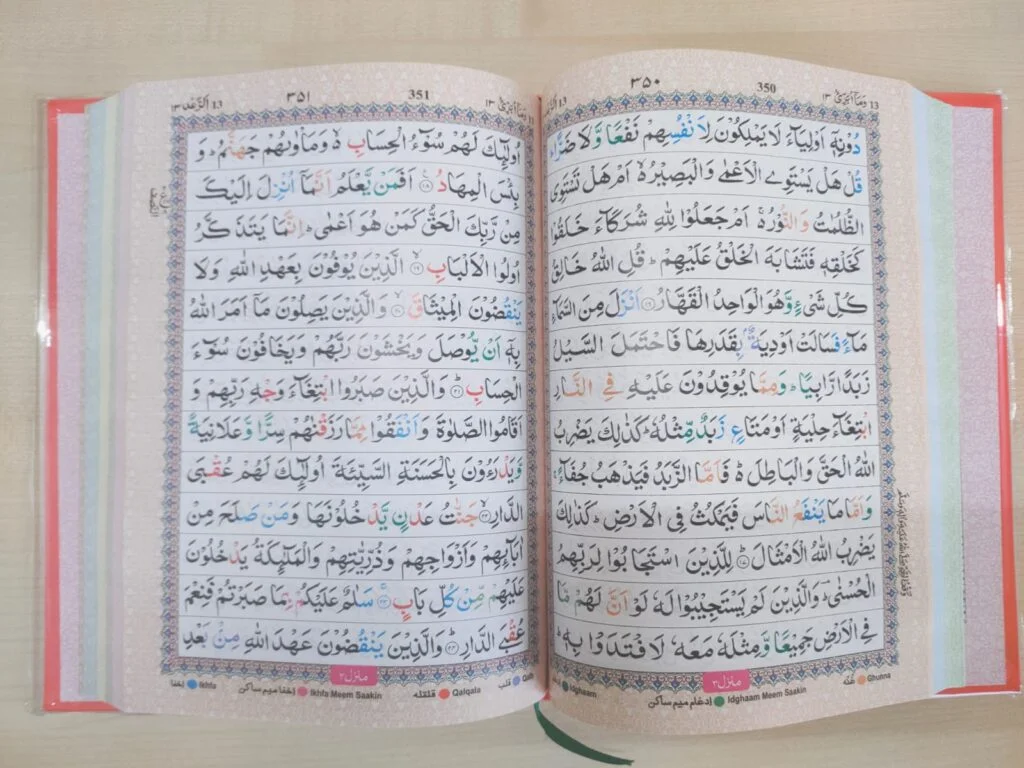 13 وَمَآ اُبَرِّئُ ١٣
350
٣٥٠
13 اَلرَّعْد
دُوْنِهٖٓ اَوْلِيَآءَ لَا يَمْلِكُوْنَ لِاَنْفُسِهِمْ نَفْعًا وَّلَا ضَرًّا
قُلْ هَلْ يَسْتَوِي الْاَعْمٰى وَالْبَصِيْرُ اَمْ هَلْ تَسْتَوِي
الظُّلُمٰتُ وَالنُّوْرُ اَمْ جَعَلُوْا لِلّٰهِ شُرَكَآءَ خَلَقُوْا
كَخَلْقِهٖ فَتَشَابَهَ الْخَلْقُ عَلَيْهِمْ قُلِ اللّٰهُ خَالِقُ
كُلِّ شَيْءٍ وَّهُوَ الْوَاحِدُ الْقَهَّارُ ۝١٦ اَنْزَلَ مِنَ السَّمَآءِ
مَآءً فَسَالَتْ اَوْدِيَةٌۢ بِقَدَرِهَا فَاحْتَمَلَ السَّيْلُ
زَبَدًا رَّابِيًا وَمِمَّا يُوْقِدُوْنَ عَلَيْهِ فِي النَّارِ
ابْتِغَآءَ حِلْيَةٍ اَوْ مَتَاعٍ زَبَدٌ مِّثْلُهٗ كَذٰلِكَ يَضْرِبُ
اللّٰهُ الْحَقَّ وَالْبَاطِلَ فَاَمَّا الزَّبَدُ فَيَذْهَبُ جُفَآءً
وَاَمَّا مَا يَنْفَعُ النَّاسَ فَيَمْكُثُ فِي الْاَرْضِ كَذٰلِكَ
يَضْرِبُ اللّٰهُ الْاَمْثَالَ ۝١٧ لِلَّذِيْنَ اسْتَجَابُوْا لِرَبِّهِمُ
الْحُسْنٰى وَالَّذِيْنَ لَمْ يَسْتَجِيْبُوْا لَهٗ لَوْ اَنَّ لَهُمْ مَّا
فِي الْاَرْضِ جَمِيْعًا وَّمِثْلَهٗ مَعَهٗ لَافْتَدَوْا بِهٖ
منزل ٣
غُنّه Ghunna
ادغام میم ساکن Idghaam Meem Saakin
Idghaam
وَمَآ اُبَرِّئُ ١٣
351
٣٥١
13 اَلرَّعْد ١٣
اُولٰٓئِكَ لَهُمْ سُوْٓءُ الْحِسَابِ وَمَاْوٰىهُمْ جَهَنَّمُ وَ
بِئْسَ الْمِهَادُ ۝١٨ اَفَمَنْ يَّعْلَمُ اَنَّمَآ اُنْزِلَ اِلَيْكَ
مِنْ رَّبِّكَ الْحَقُّ كَمَنْ هُوَ اَعْمٰى اِنَّمَا يَتَذَكَّرُ
اُولُوا الْاَلْبَابِ ۝١٩ الَّذِيْنَ يُوْفُوْنَ بِعَهْدِ اللّٰهِ وَلَا
يَنْقُضُوْنَ الْمِيْثَاقَ ۝٢٠ وَالَّذِيْنَ يَصِلُوْنَ مَآ اَمَرَ اللّٰهُ
بِهٖٓ اَنْ يُّوْصَلَ وَيَخْشَوْنَ رَبَّهُمْ وَيَخَافُوْنَ سُوْٓءَ
الْحِسَابِ ۝٢١ وَالَّذِيْنَ صَبَرُوا ابْتِغَآءَ وَجْهِ رَبِّهِمْ وَ
اَقَامُوا الصَّلٰوةَ وَاَنْفَقُوْا مِمَّا رَزَقْنٰهُمْ سِرًّا وَّعَلَانِيَةً
وَّيَدْرَءُوْنَ بِالْحَسَنَةِ السَّيِّئَةَ اُولٰٓئِكَ لَهُمْ عُقْبَى
الدَّارِ ۝٢٢ جَنّٰتُ عَدْنٍ يَّدْخُلُوْنَهَا وَمَنْ صَلَحَ مِنْ
اٰبَآئِهِمْ وَاَزْوَاجِهِمْ وَذُرِّيّٰتِهِمْ وَالْمَلٰٓئِكَةُ يَدْخُلُوْنَ
عَلَيْهِمْ مِّنْ كُلِّ بَابٍ ۝٢٣ سَلٰمٌ عَلَيْكُمْ بِمَا صَبَرْتُمْ فَنِعْمَ
عُقْبَى الدَّارِ ۝٢٤ وَالَّذِيْنَ يَنْقُضُوْنَ عَهْدَ اللّٰهِ مِنْۢ بَعْدِ
منزل ٣
قلب
قلقله Qalqala
اخفا میم ساکن Ikhfa Meem Saakin
اِخفا Ikhfa